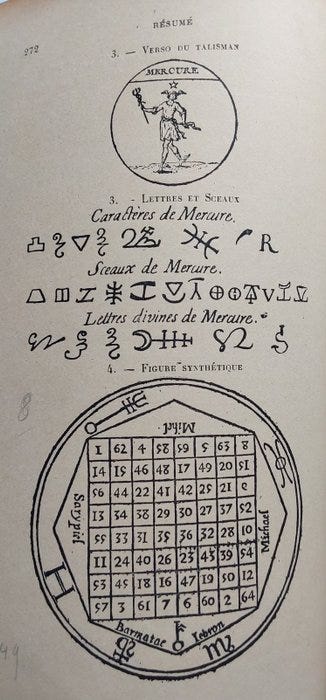 RÉSUMÉ
272
3. — VERSO DU TALISMAN
MERCURE
3. - LETTRES ET SCEAUX
Caractères de Mercure.
Sceaux de Mercure.
Lettres divines de Mercure.
4. — FIGURE SYNTHÉTIQUE
Mihel
1 62 4 58 59 5 63 8
14 15 46 48 17 49 20 51
56 44 22 41 42 25 21 9
13 34 38 29 30 27 37 52
55 33 31 35 36 32 28 10
11 24 40 26 23 43 39 54
53 45 18 16 47 19 50 12
57 3 61 7 6 60 2 64
Michael
Barmatae
8